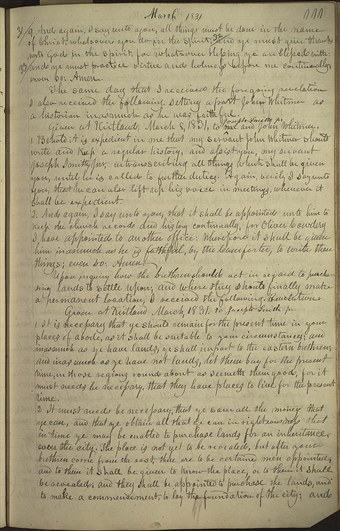 March 1831
111
31 9 And again, I say unto you, all things must be done in the name
of Christ, whatsoever you do in the Spirit; And ye must give thanks
unto God in the Spirit for whatsoever blessing ye are blessed with:
And ye must practice virtue and holiness before me continually,
even so. Amen.
The same day that I received the foregoing revelation
I also received the following, setting apart John Whitmer as
a historian inasmuch as he was faithful.
Given at Kirtland, March 8, 1831, to Joseph Smith jr and John Whitmer.
1 Behold it is expedient in me that my servant John should
write and keep a regular history, and assist you, my servant
Joseph Smith, jr, in transcribing all things which shall be given
you, until he is called to further duties. Again, verily, I say unto
you, that he can also lift up his voice in meetings, whenever it
shall be expedient.
2. And again, I say unto you, that it shall be appointed unto him to
keep the church record and history continually, for Oliver Cowdery
I have appointed to another office. Wherefore it shall be given
him inasmuch as he is faithful, by the Comforter, to write these
things; even so. Amen.
Upon inquiry how the brethren should act in regard to purcha-
sing lands to settle upon, and where they should finally make
a permanent location, I received the following, Revelation
Given at Kirtland, March, 1831. to Joseph Smith jr
1 It is necessary that ye should remain for the present time in your
places of abode, as it shall be suitable to your circumstances; and
inasmuch as ye have lands, ye shall impart to the eastern brethren,
and inasmuch as ye have not lands, let them buy for the present
time, in those regions round about as seemeth them good, for it
must needs be necessary, that they have places to live for the present
time.
2 It must needs be necessary, that ye save all the money that
ye can, and that ye obtain all that ye can in righteousness that
in time ye may be enabled to purchase lands for an inheritance,
even the city. The place is not yet to be revealed, but after your
brethren come from the east, there are to be certain men appointed,
and to them it shall be given to know the place, or to them it shall
be revealed; and they shall be appointed to purchase the lands, and
to make a commencement to lay the foundation of the city; and